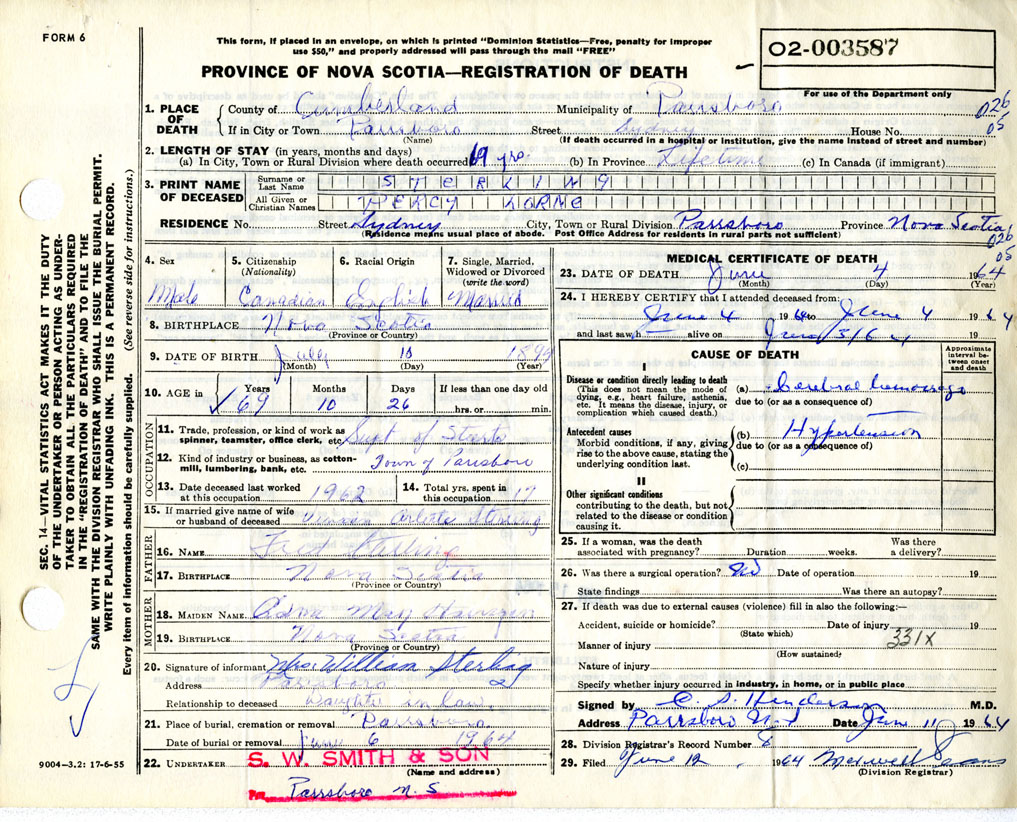 FORM 6
This form, if placed in an envelope, on which is printed "Dominion Statistics—Free, penalty for improper
use $50," and properly addressed will pass through the mail "FREE"
O2-003587
For use of the Department only
PROVINCE OF NOVA SCOTIA—REGISTRATION OF DEATH
1. PLACE OF DEATH County of Cumberland Municipality of Parrsboro 026
If in City or Town Parrsboro Street Sydney House No. 05
(Name) (If death occurred in a hospital or institution, give the name instead of street and number)
2. LENGTH OF STAY (in years, months and days)
(a) In City, Town or Rural Division where death occurred 69 yrs. (b) In Province Lifetime (c) In Canada (if immigrant)
3. PRINT NAME OF DECEASED Surname or Last Name STERLING
All Given or Christian Names PERCY LORNE
RESIDENCE No. Street Sydney City, Town or Rural Division Parrsboro Province Nova Scotia
(Residence means usual place of abode. Post Office Address for residents in rural parts not sufficient) 026
05
4. Sex Male
5. Citizenship (Nationality) Canadian
6. Racial Origin English
7. Single, Married, Widowed or Divorced (write the word) Married
8. BIRTHPLACE Nova Scotia
(Province or Country)
9. DATE OF BIRTH July 10 1894
(Month) (Day) (Year)
10. AGE in Years 69 Months 10 Days 26 If less than one day old hrs. or min.
OCCUPATION
11. Trade, profession, or kind of work as spinner, teamster, office clerk, etc. Supt of Streets
12. Kind of industry or business, as cotton-mill, lumbering, bank, etc. Town of Parrsboro
13. Date deceased last worked at this occupation 1962
14. Total yrs. spent in this occupation 17
15. If married give name of wife or husband of deceased Sterling
FATHER
16. NAME Sterling
17. BIRTHPLACE Nova Scotia
(Province or Country)
MOTHER
18. MAIDEN NAME May
19. BIRTHPLACE Nova Scotia
(Province or Country)
20. Signature of informant Mrs. William Sterling
Address Parrsboro
Relationship to deceased Daughter in law
21. Place of burial, cremation or removal Parrsboro
Date of burial or removal June 6 1964
22. UNDERTAKER S. W. SMITH & SON
(Name and address)
Parrsboro N. S
MEDICAL CERTIFICATE OF DEATH
23. DATE OF DEATH June 4 1964
(Month) (Day) (Year)
24. I HEREBY CERTIFY that I attended deceased from:
June 4 1964 to June 4 1964
and last saw h alive on June 3 1964
CAUSE OF DEATH
Approximate interval between onset and death
I
Disease or condition directly leading to death
(This does not mean the mode of dying, e.g., heart failure, asthenia, etc. It means the disease, injury, or complication which caused death.)
(a) Cerebral hemorrage
due to (or as a consequence of)
Antecedent causes
Morbid conditions, if any, giving rise to the above cause, stating the underlying condition last.
(b) Hypertension
due to (or as a consequence of)
(c)
II
Other significant conditions
contributing to the death, but not related to the disease or condition causing it.
25. If a woman, was the death associated with pregnancy? Duration weeks. Was there a delivery?
26. Was there a surgical operation? No Date of operation 19
State findings Was there an autopsy?
27. If death was due to external causes (violence) fill in also the following:—
Accident, suicide or homicide? Date of injury 19
(State which)
Manner of injury 331X
(How sustained)
Nature of injury
Specify whether injury occurred in industry, in home, or in public place
Signed by C. S. Henderson M.D.
Address Parrsboro N.S Date June 11 1964
28. Division Registrar's Record Number 8
29. Filed June 12 1964 Maxwell
(Division Registrar)
SEC. 14—VITAL STATISTICS ACT MAKES IT THE DUTY
OF THE UNDERTAKER OR PERSON ACTING AS UNDER-
TAKER TO OBTAIN ALL THE PARTICULARS REQUIRED
IN THE "REGISTRATION OF DEATH" AND TO FILE THE
SAME WITH THE DIVISION REGISTRAR WHO SHALL ISSUE THE BURIAL PERMIT.
WRITE PLAINLY WITH UNFADING INK. THIS IS A PERMANENT RECORD.
Every item of information should be carefully supplied. (See reverse side for instructions.)
9004—3.2: 17-6-55